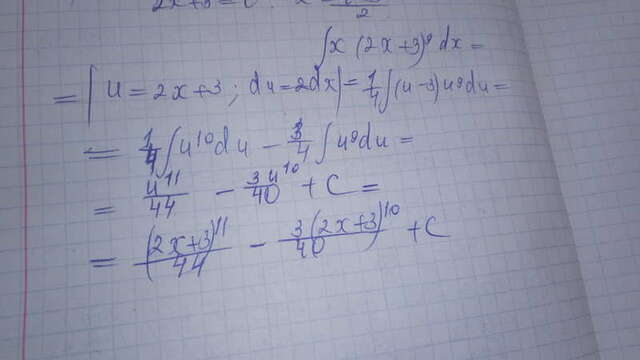 2x+3=0
2
∫x (2x+3)⁹ dx =
= | u = 2x+3 ; du = 2dx | = 1/4 ∫(u-3)u⁹du =
= 1/4 ∫u¹⁰du - 3/4 ∫u⁹du =
= u¹¹/44 - 3u¹⁰/40 + C =
= (2x+3)¹¹/44 - 3(2x+3)¹⁰/40 + C